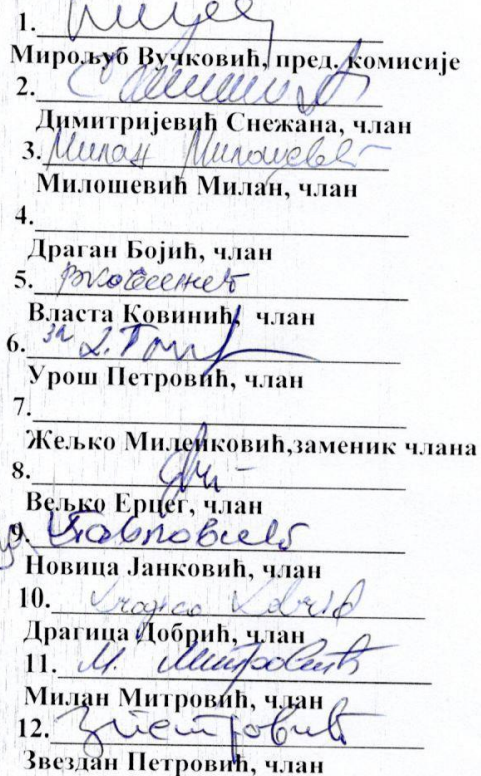 1.
Мирољуб Вучковић, пред. комисије
2.
Димитријевић Снежана, члан
3. Милан Милошевић
Милошевић Милан, члан
4.
Драган Бојић, члан
5. ВКовинић
Власта Ковинић, члан
6. за
Урош Петровић, члан
7.
Жељко Миленковић,заменик члана
8.
Вељко Ерцег, члан
9.
Новица Јанковић, члан
10. Dragica Dobrić
Драгица Добрић, члан
11. М. Митровић
Милан Митровић, члан
12. ЗПетровић
Звездан Петровић, члан